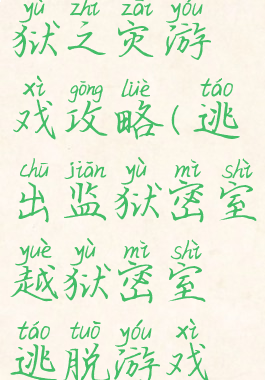 yù zhī zāi yóu
狱之灾游
xì gōng lüè táo
戏攻略(逃
chū jiān yù mì shì
出监狱密室
yuè yù mì shì
越狱密室
táo tuō yóu xì
逃脱游戏